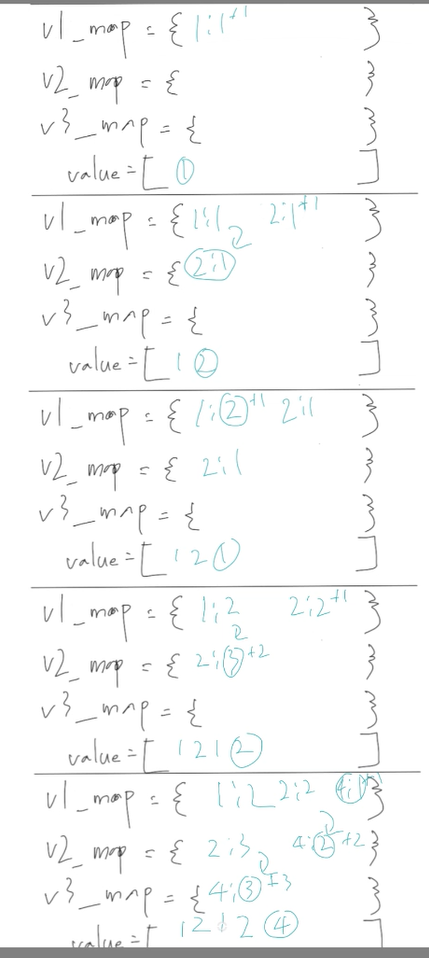 v1_map = { 1:1 +1 }
v2_map = { }
v3_map = { }
value = [ 1 ]
v1_map = { 1:1 2:1 +1 }
v2_map = { 2:1 }
v3_map = { }
value = [ 1 2 ]
v1_map = { 1:2 +1 2:1 }
v2_map = { 2:1 }
v3_map = { }
value = [ 1 2 1 ]
v1_map = { 1:2 2:2 +1 }
v2_map = { 2:3 +2 }
v3_map = { }
value = [ 1 2 1 2 ]
v1_map = { 1:2 2:2 4:1 +1 }
v2_map = { 2:3 4:2 +2 }
v3_map = { 4:3 +3 }
value = [ 1 2 1 2 4 ]